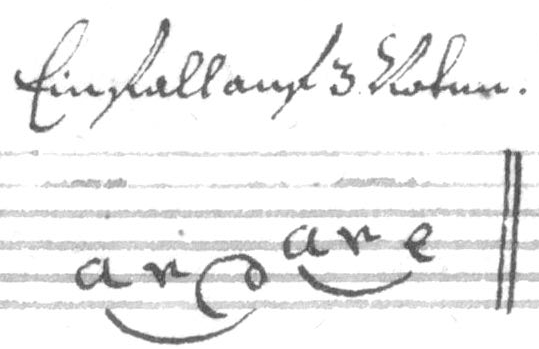 Ein fall auf 3 Noten.
a r d a r e